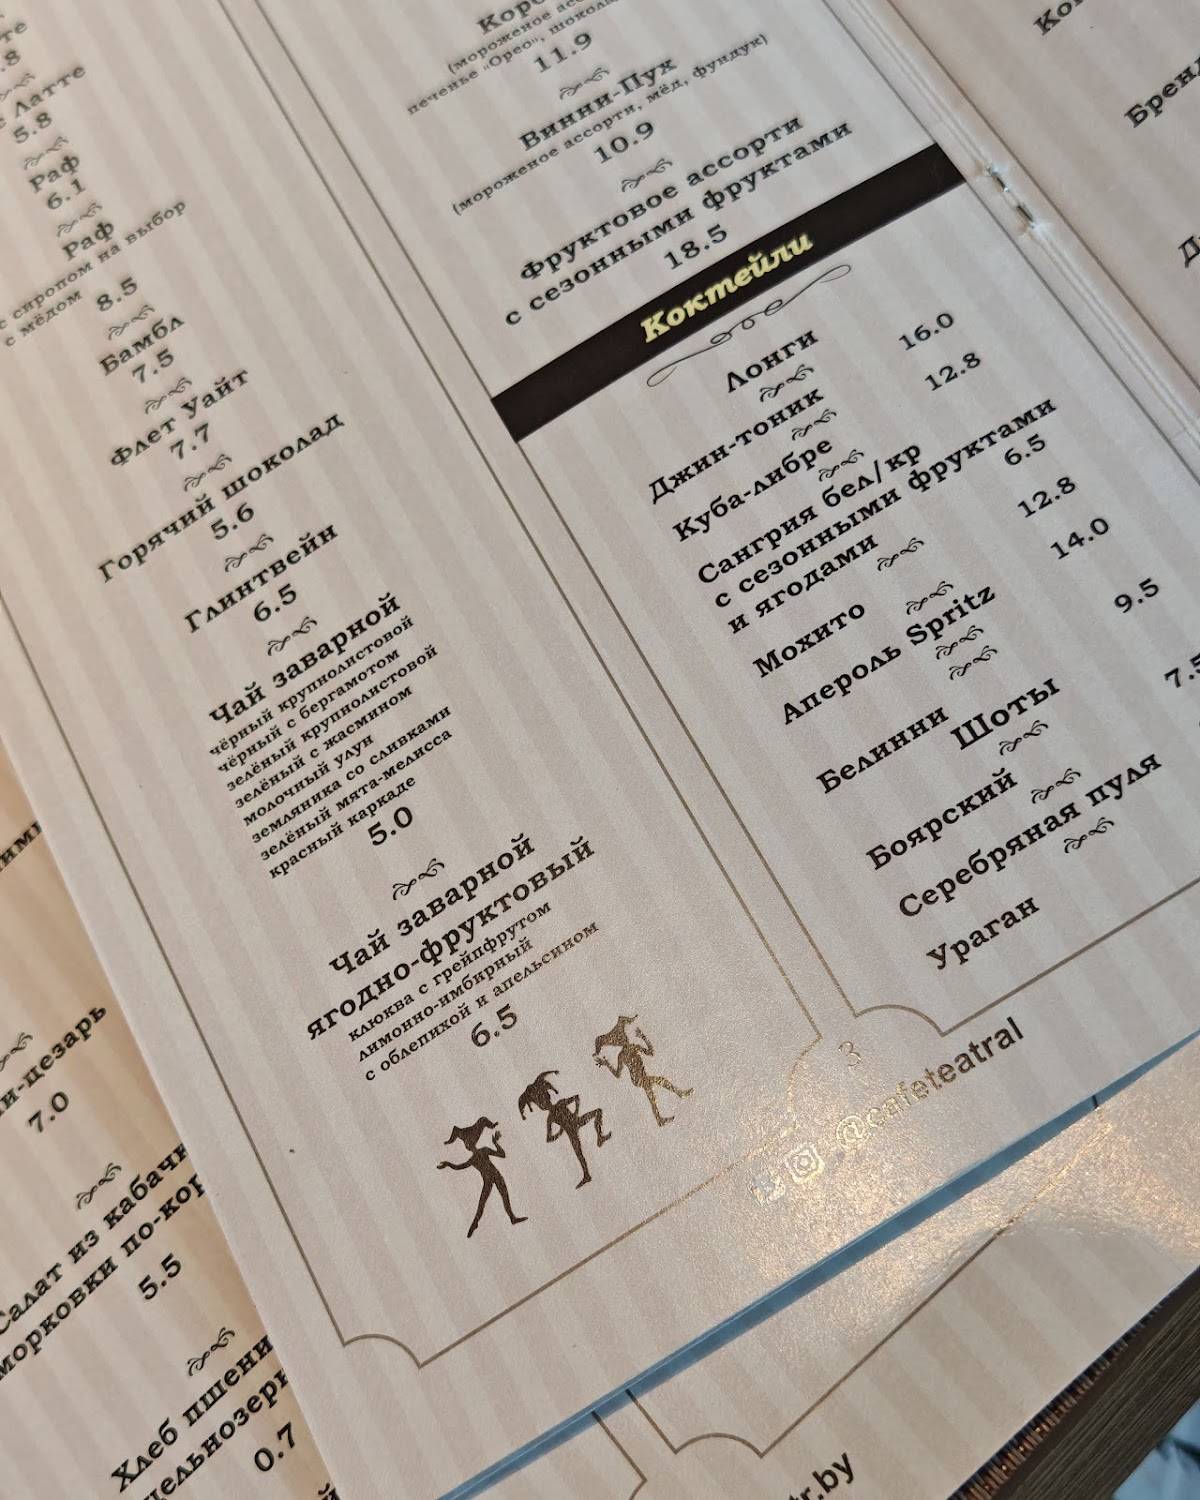 5.8
Латте
5.8
Раф
6.1
Раф
с сиропом на выбор
с мёдом 8.5
Бамбл
7.5
Флет Уайт
7.7
Горячий шоколад
5.6
Глинтвейн
6.5
Чай заварной
чёрный крупнолистовой
чёрный с бергамотом
зелёный крупнолистовой
зелёный с жасмином
молочный улун
земляника со сливками
зелёный мята-мелисса
красный каркаде
5.0
Чай заварной
ягодно-фруктовый
клюква с грейпфрутом
лимонно-имбирный
с облепихой и апельсином
6.5
(мороженое
печенье «Орео»,
11.9
Винни-Пух
(мороженое ассорти, мёд, фундук)
10.9
Фруктовое ассорти
с сезонными фруктами
18.5
Коктейли
Лонги 16.0
Джин-тоник 12.8
Куба-либре
Сангрия бел/кр
с сезонными фруктами
и ягодами 6.5
Мохито 12.8
Апероль Spritz 14.0
Белинни 9.5
Шоты
Боярский 7.5
Серебряная пуля
Ураган
3
@cafeteatral
7.0
Салат из
морковки
5.5
Хлеб
0.7